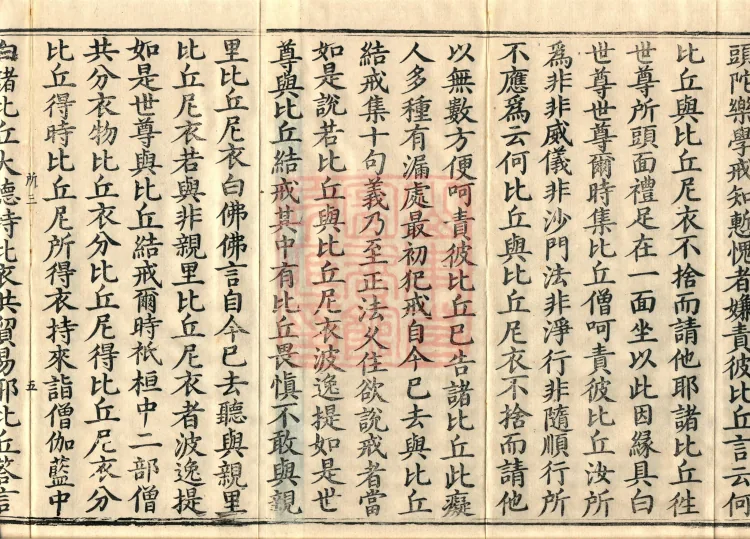 頭陀樂學戒知慙愧者嫌責彼比丘言云何
比丘與比丘尼衣不捨而請他耶諸比丘徃
世尊所頭面禮足在一面坐以此因緣具白
世尊世尊爾時集比丘僧呵責彼比丘汝所
爲非非威儀非沙門法非淨行非隨順行所
不應爲云何比丘與比丘尼衣不捨而請他
以無數方便呵責彼比丘已告諸比丘此癡
人多種有漏處最初犯戒自今已去與比丘
結戒集十句義乃至正法久住欲說戒者當
如是說若比丘與比丘尼衣波逸提如是世
尊與比丘結戒其中有比丘畏愼不敢與親
里比丘尼衣白佛佛言自今已去聽與親里
比丘尼衣若與非親里比丘尼衣者波逸提
如是世尊與比丘結戒爾時祇桓中二部僧
共分衣物比丘衣分比丘尼得比丘尼衣分
比丘得時比丘尼所得衣持來詣僧伽藍中
所三
五
白諸比丘大德持此衣共貿易耶比丘荅言